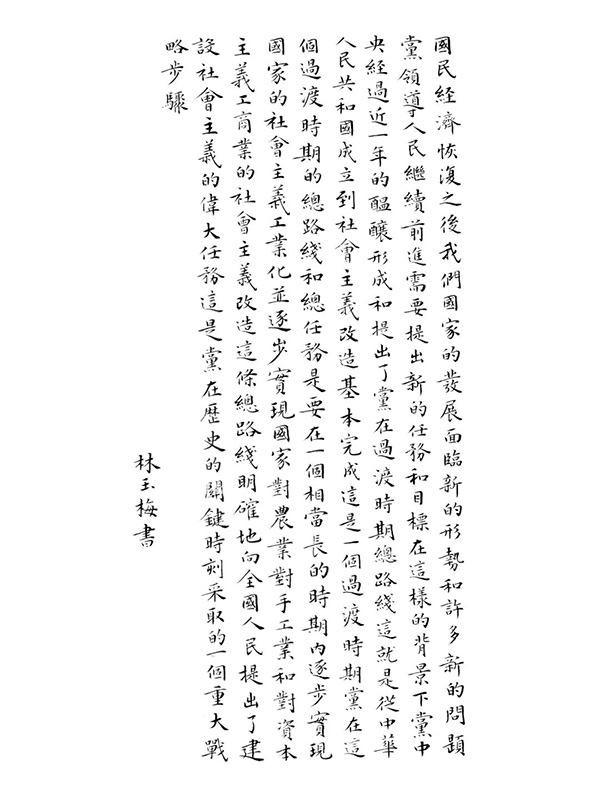 國民經濟恢復之後我們國家的發展面臨新的形勢和許多新的問題
黨領導人民繼續前進需要提出新的任務和目標在這樣的背景下黨中
央經過近一年的醞釀形成和提出了黨在過渡時期總路綫這就是從中華
人民共和國成立到社會主義改造基本完成這是一個過渡時期黨在這
個過渡時期的總路綫和總任務是要在一個相當長的時期內逐步實現
國家的社會主義工業化並逐步實現國家對農業對手工業和對資本
主義工商業的社會主義改造這條總路綫明確地向全國人民提出了建
設社會主義的偉大任務這是黨在歷史的關鍵時刻采取的一個重大戰
略步驟
林玉梅書